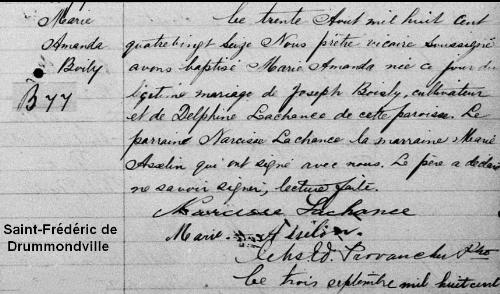 Marie
Amanda
Boily
B 77
Saint-Frédéric de
Drummondville
Le trente Aout mil huit cent
quatrebingt seize Nous prêtre vicaire soussigné
avons baptisé Marie Amanda née ce jour du
légitime mariage de Joseph Boily, cultivateur
et de Delphine Lachance de cette paroisse. Le
parrain Narcisse Lachance la marraine Marie
Asselin qui ont signé avec nous. Le père a déclaré
ne savoir signer, lecture faite.
Narcisse Lachance
Marie Asselin.
Chs Ed. Provancher Ptre
Le trois septembre mil huit cent